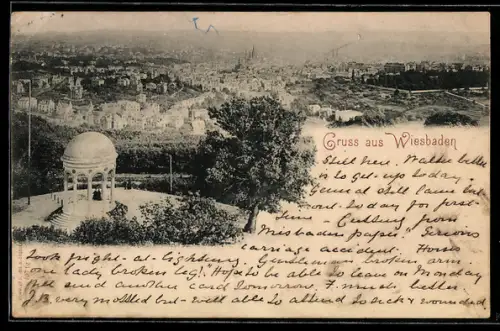 Gruss aus Wiesbaden
Still here. Walter better
is to get up today.
General still lame but
out to day for first
time — Cutting from
Wiesbaden paper, "Serious
carriage accident. Horse
took fright at lightning. Gentleman broken arm.
one lady broken leg! Hope to be able to leave on Monday
Will send another card tomorrow. F. much better
J.B. very mottled but well able to attend to sick & wounded